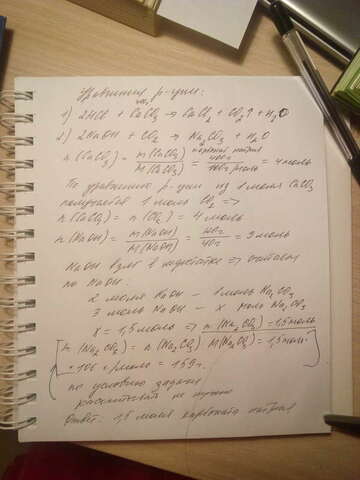 Уравнения р-ции:
1) 2HCl + CaCO₃ → CaCl₂ + CO₂↑ + H₂O
2) 2NaOH + CO₂ → Na₂CO₃ + H₂O
карбонат натрия
n(CaCO₃) = m(CaCO₃) / M(CaCO₃) = 400г / 100г/моль = 4 моль
По уравнению р-ции из 1 моля CaCO₃
получается 1 моль CO₂ =>
n(CaCO₃) = n(CO₂) = 4 моль
n(NaOH) = m(NaOH) / M(NaOH) = / 40г = 3 моль
NaOH взят в недостатке =>
по NaOH.
2 моля NaOH – 1 моль Na₂CO₃
3 моль NaOH – x моль Na₂CO₃
x = 1,5 моль => n(Na₂CO₃) = 1,5 моль
(Na₂CO₃) = n(Na₂CO₃) M(Na₂CO₃) = 1,5 моль ·
· 106 г/моль = 159г.
по условию задачи
рассчитывать не нужно
Ответ: 1,5 моля карбоната натрия